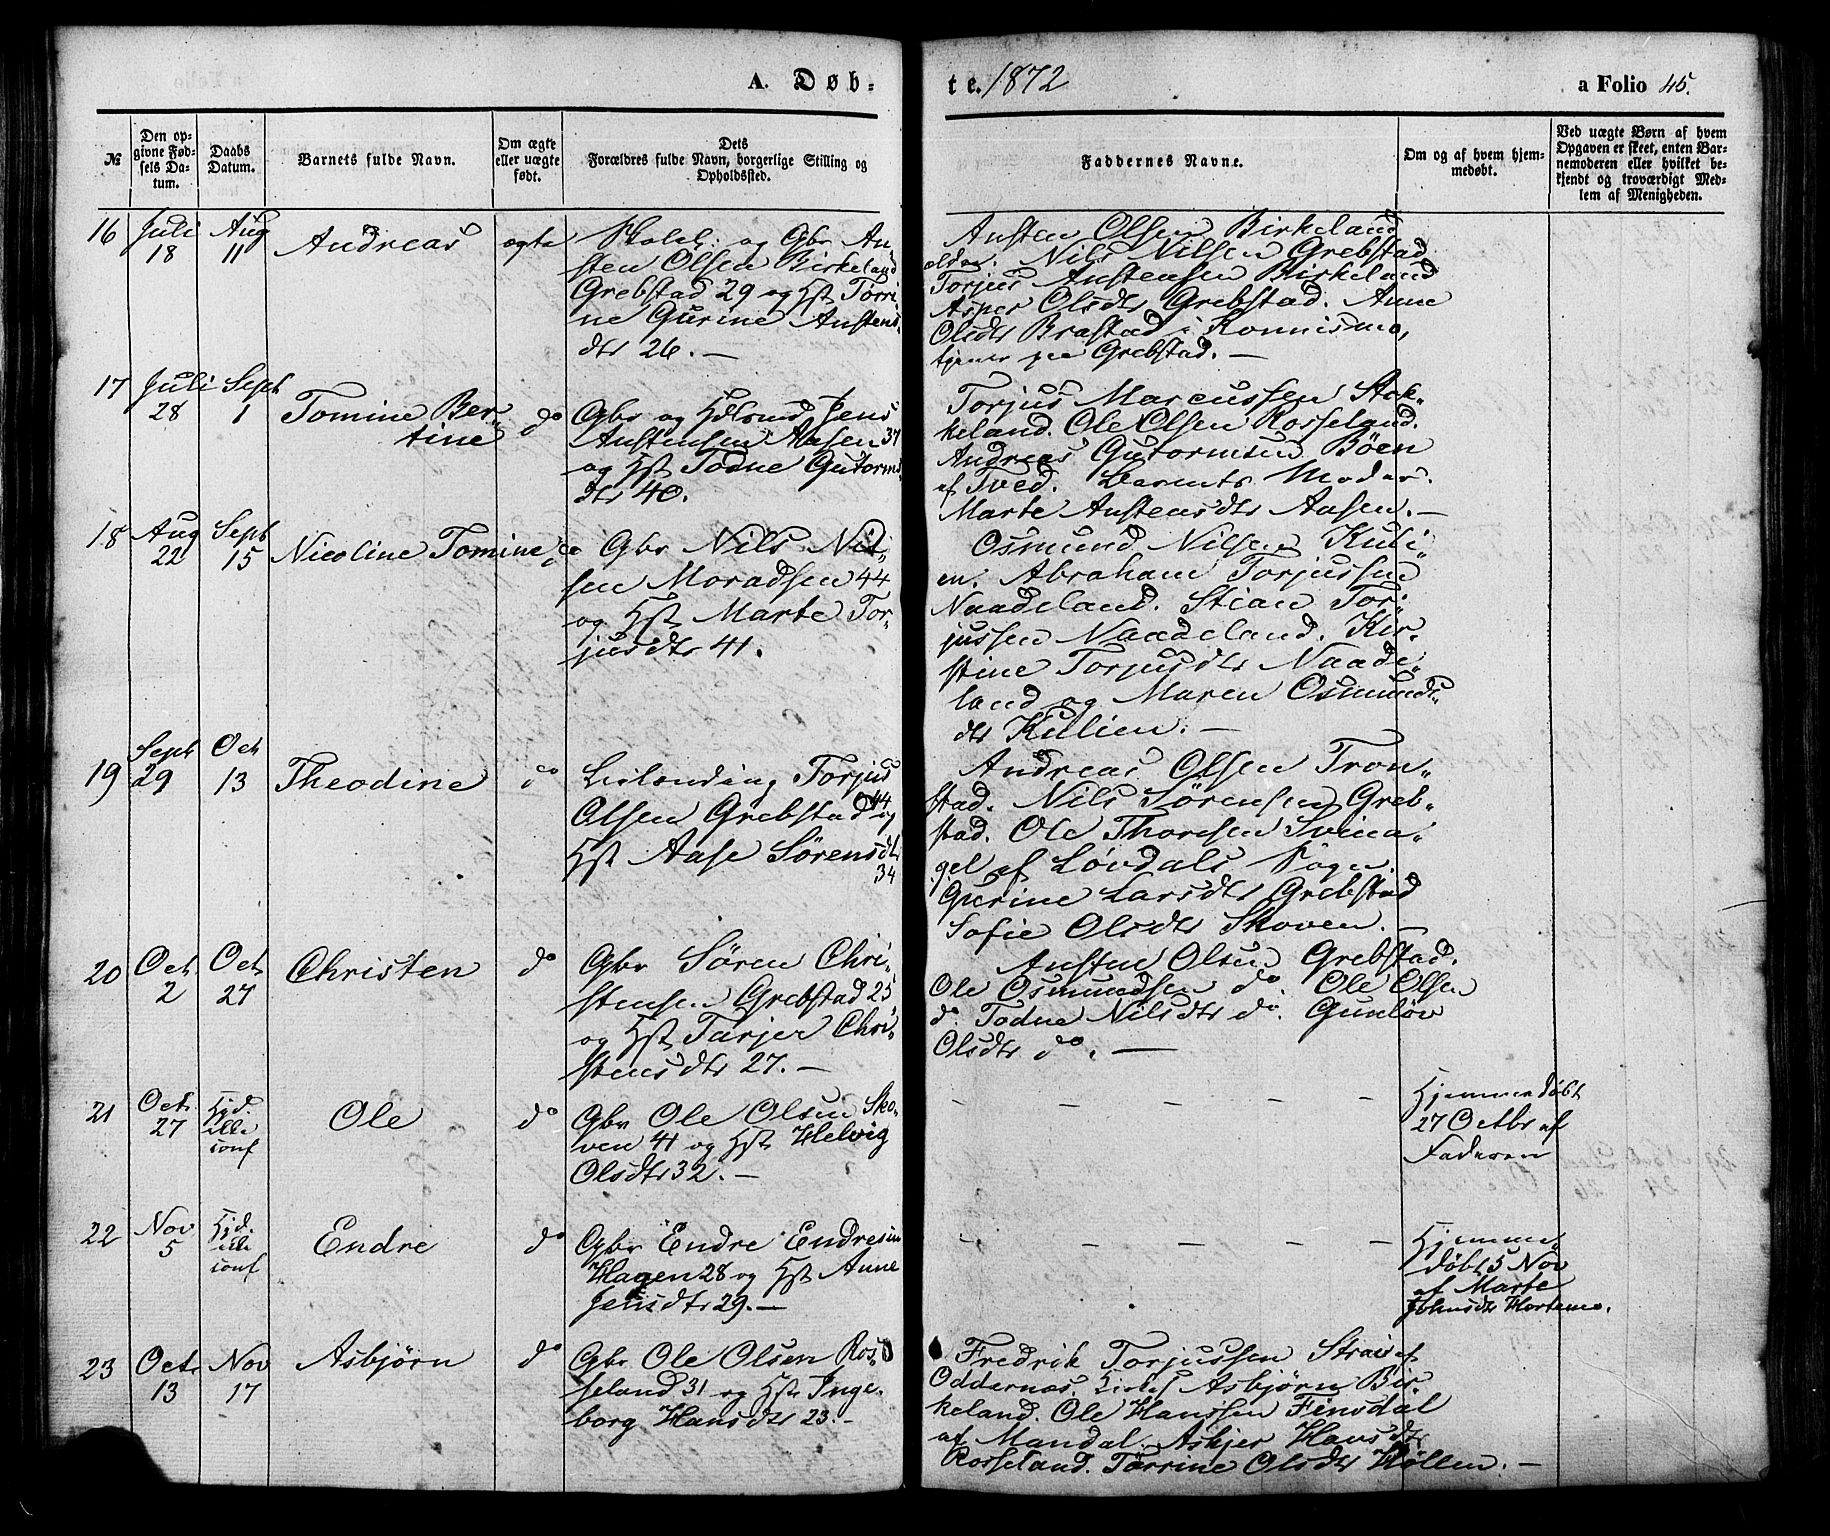 A. Døb-
te. 1872
a Folio 45.
№
Den op-
givne Fød-
sels Da-
tum.
Daabs
Datum.
Barnets fulde Navn.
Om ægte
eller uægte
født.
Dets
Forældres fulde Navn, borgerlige Stilling og
Opholdssted.
Faddernes Navne.
Om og af hvem hjem-
medøbt.
Ved uægte Børn af hvem
Opgaven er skeet, enten Bar-
nemoderen eller hvilket be-
kjendt og troværdigt Med-
lem af Menigheden.
16 Juli 18 Aug 11 Andreas ægte
og Gbr An-
sten Olsen Birkeland
Grebstad 29 og Hst Torri-
ne Gurine Anstens
dtr 26. —
Ansten Olsen Birkeland
Nils Nilsen Grebstad
Torjus Anstensen Birkeland
Asper Olsdtr Grebstad. Anne
Olsdtr Brastad i Konnismo,
tjener paa Grebstad. —
17 Juli 28 Sept 1 Tomine Ber-
tine do
Gbr og Jens
Anstensen Aasen 37
og Hst Todne Gutorms
dtr 40.
Torjus Marcussen Stok-
keland. Ole Olsen Rosseland.
Andreas Gutormsen Bøen
af Tved. Barnets Moder.
Marte Anstensdtr Aasen. —
18 Aug 22 Sept 15 Nicoline Tomine do
Gbr Nils Nil-
sen Moradsen 44
og Hst Marte Tor-
jusdtr 41.
Osmund Nilsen Kuli-
en. Abraham Torjussen
Naadeland. Stian Tor-
jussen Naadeland. Kir-
stine Torjusdtr Naade-
land og Maren Osmunds-
dtr Kulien. —
19 Sept 29 Oct 13 Theodine do
Torjus
Olsen Grebstad 44 og
Hst Aase Sørensdtr
34
Andreas Olsen Tron-
stad. Nils Sørensen Greb-
stad. Ole Thoresen Svina-
gel af Løvdals Sogn.
Gurine Larsdtr Grebstad
Sofie Olsdtr Skoven. —
20 Oct. 2 Oct 27 Christen do
Gbr Søren Chri-
stensen Grebstad 25
og Hst Tarjer Chri-
stensdtr 27. —
Ansten Olsen Grebstad.
Ole Osmundsen do. Ole Olsen
do. Todne Nilsdtr do. Gunløv
Olsdtr do. —
21 Oct. 27 Hjd. ille conf Ole do
Gbr Ole Olsen Sko-
ven 41 og Hst Helvig
Olsdtr 32. —
— — — — —
Hjemmedøbt
27 Octbr af
Faderen
22 Nov 5 Hjd. ille conf Endre do
Gbr Endre Endresen
Hagen 28 og Hst Anne
Jensdtr 29. —
— — — — —
Hjemme
døbt 5 Nov
af Marte
Johnsdtr Hortemo.
23 Oct. 13 Nov 17 Asbjørn do
Gbr Ole Olsen Ros-
seland 31 og Hst Inge-
borg Hansdtr 23. —
Fredrik Torjussen Strai af
Oddernæs. Asbjørn Bir-
keland. Ole Hanssen Finsdal
af Mandal. Askjer Hansdtr
Rosseland. Torrine Olsdtr Høllen. —